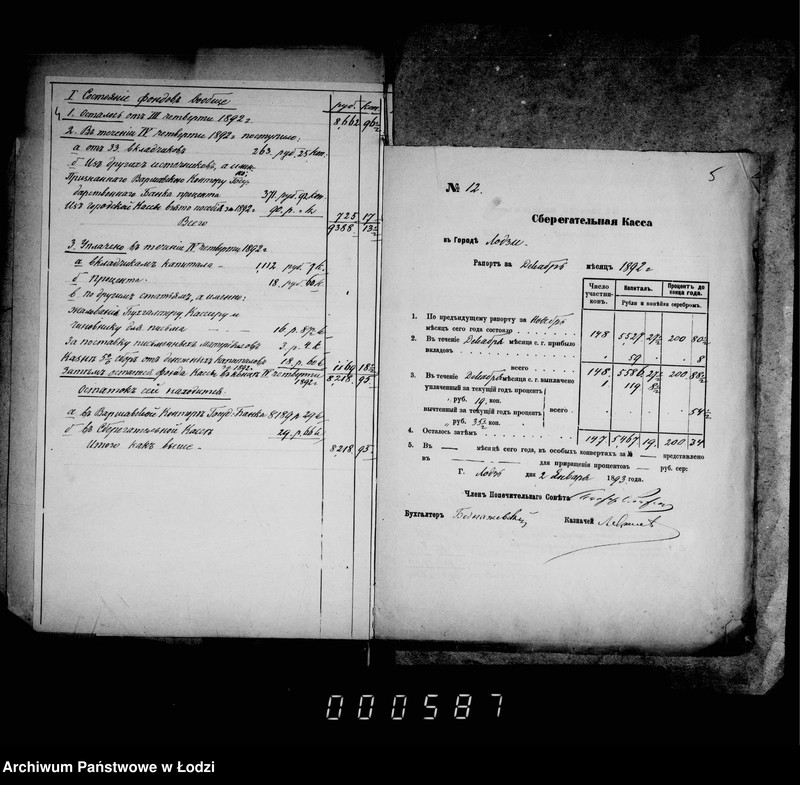 I Состояніе фондовъ вообще
руб. коп.
1. Осталось отъ III четверти 1892 г. 8,662 96½
2. Въ теченіи IV четверти 1892 г. поступило:
а отъ 33 вкладчиковъ 263 руб. 25 коп.
б Изъ другихъ источниковъ, а именно:
Признаннаго Варшавскою Конторою Госу-
дарственнаго Банка процента 371 руб. 92 коп.
Изъ городской Кассы взято пособія за 1892 г. 90 р. " к. 725 17
Всего 9388 13½
3. Уплачено въ теченіи IV четверти 1892 г.
а вкладчикамъ капитала – 1,112 руб. 9 к.
б процента 18 руб. 60 к.
в по другимъ статьямъ, а именно:
жалованія Бухгалтеру, Кассиру и
чиновнику для письма 16 р. 87½ к.
За поставку письменныхъ матеріаловъ 3 р. 4 к.
Казнѣ 5% сбора отъ денежныхъ капиталовъ за 1892 г. 18 р. 60 к. 1169 18½
Затѣмъ остается фонда Кассы въ концѣ IV четверти 1892 г. 8218 95
Остатокъ сей находится:
а въ Варшавской Конторѣ Госуд. Банка 8189 р. 29 к.
б въ Сберегательной Кассѣ 29 р. 66 к.
Итого какъ выше – 8218 95
5
№ 12.
Сберегательная Касса
въ Городѣ Лодзи.
Рапортъ за Декабрь мѣсяцъ 1892 г
Число участни-ковъ. Капиталъ. Процентъ до конца года.
Рубли и копѣйки серебромъ.
1. По предъидущему рапорту за Ноябрь
мѣсяцъ сего года состояло 148 5527 27½ 200 80½
2. Въ теченіе Декабря мѣсяца с. г. прибыло
вкладовъ " 59 " " 8
всего 148 5586 27½ 200 88½
3. Въ теченіе Декабря мѣсяца с. г. выплачено 1 119 8½
уплаченный за текущій годъ процентъ
" руб. 19 коп.
вычтенный за текущій годъ процентъ всего " 54½
" руб. 35½ коп.
4. Осталось затѣмъ 147 5467 19 200 34
5. Въ — мѣсяцѣ сего года, въ особыхъ конвертахъ за № — представлено
въ — для приращенія процентовъ — руб. сер:
Г. Лодзь дня 2 Января 1893 года.
Членъ Попечительнаго Совѣта
Бухгалтеръ
Казначей
000587
Archiwum Państwowe w Łodzi